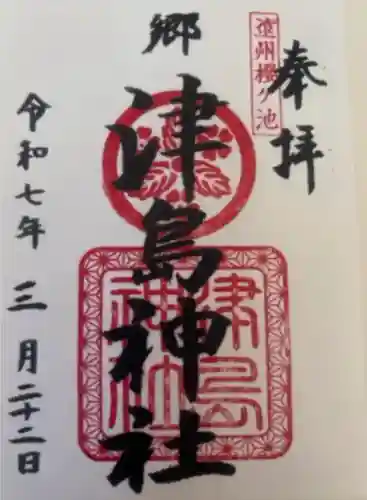 奉拝
遠州桜ケ池
郷
津島神社
津島
神社
令和七年 三月二十二日